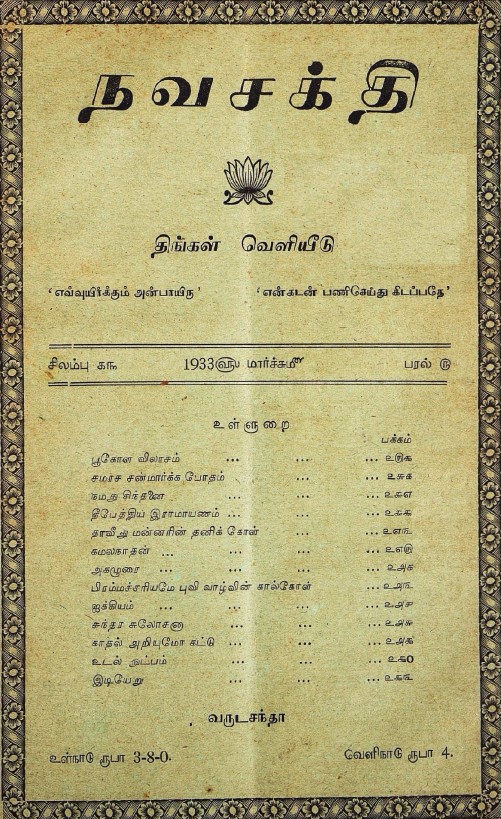 நவசக்தி
திங்கள் வெளியீடு
‘எவ்வுயிர்க்கும் அன்பாயிரு’ ‘என்கடன் பணிசெய்து கிடப்பதே’
சிலம்பு ௧௩ 1933௵ மார்ச்சு௴ பரல் ௫
உள்ளுறை
பக்கம்
பூகோள விலாசம் ... ... ...
சமரச சன்மார்க்க போதம் ... ...
நமது சிந்தனை ... ... ...
தீபேத்திய இராமாயணம் ... ... ...
தாவீது மன்னரின் தனிக் கோள் ... ...
கமலநாதன் ... ... ... ... ௨௭௫
அகமுரை ... ... ... ...
பிரம்மச்சரியமே புவி வாழ்வின் கால்கோள் ... ...
ஐக்கியம் ... ... ... ...
சுந்தர சுலோசனா ... ... ...
காதல் அறியுமோ கட்டு ... ... ...
உடல் நுட்பம் ... ... ... ௨௯0
இடியேறு ... ... ...
வருடசந்தா
உள்நாடு ரூபா 3-8-0. வெளிநாடு ரூபா 4.